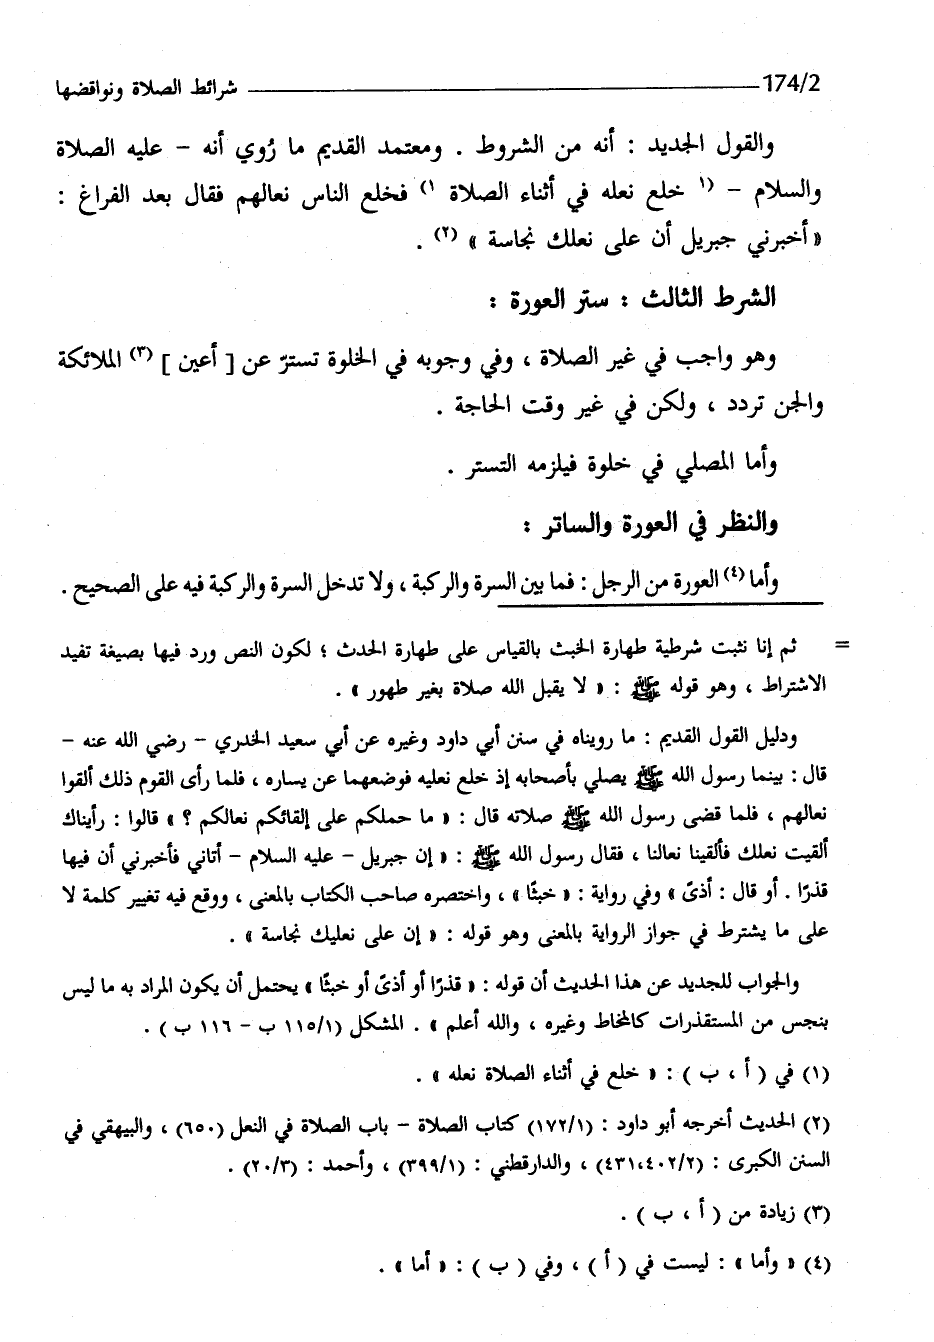 174/2 ـــــــــــــــــــــــــــــــــــــــــ شرائط الصلاة ونواقضها
والقول الجديد : أنه من الشروط . ومعتمد القديم ما رُوي أنه – عليه الصلاة
والسلام – (١ خلع نعله في أثناء الصلاة ١) فخلع الناس نعالهم فقال بعد الفراغ :
« أخبرني جبريل أن على نعلك نجاسة » (٢) .
الشرط الثالث : ستر العورة :
وهو واجب في غير الصلاة ، وفي وجوبه في الخلوة تسترّ عن [ أعين ] (٣) الملائكة
والجن تردد ، ولكن في غير وقت الحاجة .
وأما المصلي في خلوة فيلزمه التستر .
والنظر في العورة والساتر :
وأما (٤) العورة من الرجل : فما بين السرة والركبة ، ولا تدخل السرة والركبة فيه على الصحيح .
= ثم إنا نثبت شرطية طهارة الخبث بالقياس على طهارة الحدث ؛ لكون النص ورد فيها بصيغة تفيد
الاشتراط ، وهو قوله ﷺ : « لا يقبل الله صلاة بغير طهور » .
ودليل القول القديم : ما رويناه في سنن أبي داود وغيره عن أبي سعيد الخدري – رضي الله عنه –
قال : بينما رسول الله ﷺ يصلي بأصحابه إذ خلع نعليه فوضعهما عن يساره ، فلما رأى القوم ذلك ألقوا
نعالهم ، فلما قضى رسول الله ﷺ صلاته قال : « ما حملكم على إلقائكم نعالكم ؟ » قالوا : رأيناك
ألقيت نعلك فألقينا نعالنا ، فقال رسول الله ﷺ : « إن جبريل – عليه السلام – أتاني فأخبرني أن فيها
قذرًا . أو قال : أذىً » وفي رواية : « خبثًا » ، واختصره صاحب الكتاب بالمعنى ، ووقع فيه تغيير كلمة لا
على ما يشترط في جواز الرواية بالمعنى وهو قوله : « إن على نعليك نجاسة » .
والجواب للجديد عن هذا الحديث أن قوله : « قذرًا أو أذىً أو خبثًا » يحتمل أن يكون المراد به ما ليس
بنجس من المستقذرات كالمخاط وغيره ، والله أعلم » . المشكل (١١٥/١ ب – ١١٦ ب ) .
(١) في ( أ ، ب ) : « خلع في أثناء الصلاة نعله » .
(٢) الحديث أخرجه أبو داود : (١٧٢/١) كتاب الصلاة – باب الصلاة في النعل (٦٥٠) ، والبيهقي في
السنن الكبرى : (٤٣١،٤٠٢/٢) ، والدارقطني : (٣٩٩/١) ، وأحمد : (٢٠/٣) .
(٣) زيادة من ( أ ، ب ) .
(٤) « وأما » : ليست في ( أ ) ، وفي ( ب ) : « أما » .